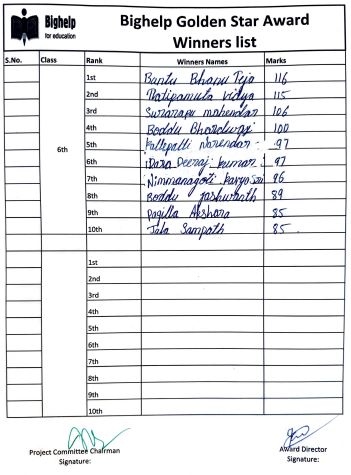 Bighelp
for education
Bighelp Golden Star Award
Winners list
S.No. Class Rank Winners Names Marks
6th
1st Bantu Bhanu Teja 116
2nd Thatipamula vidya 115
3rd Surarapu mahendar 106
4th Boddu Bhardwaj 100
5th Kallepalli Narendar 97
6th Dara Deeraj kumar 97
7th Nimmanagoti Kavya Sri 96
8th Boddu Jashwanth 89
9th Pagilla Akshara 85
10th Jala Sampath 85
1st
2nd
3rd
4th
5th
6th
7th
8th
9th
10th
Project Committee Chairman
Signature:
Award Director
Signature: